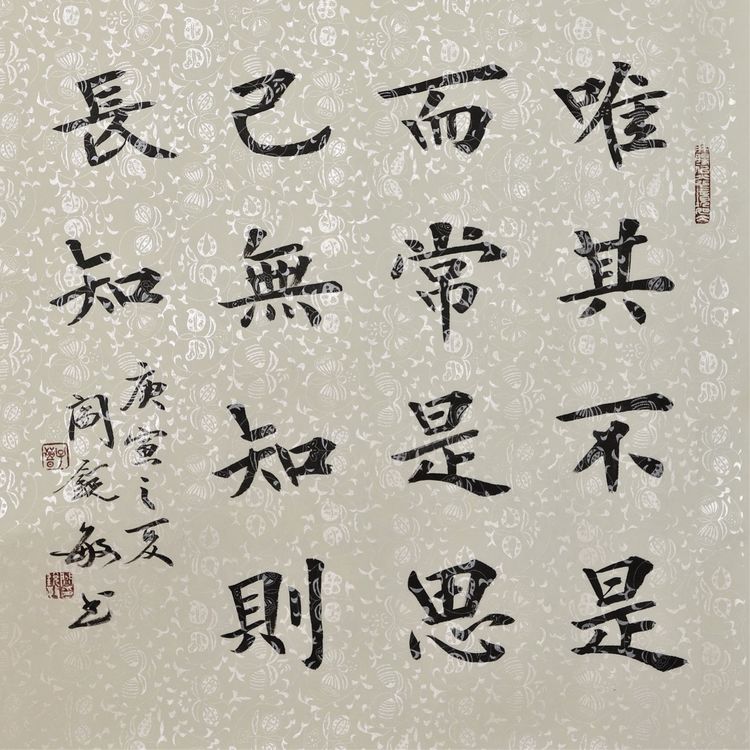 唯其不是
而常是思
己無知則
長知
庚寅之夏
敏书